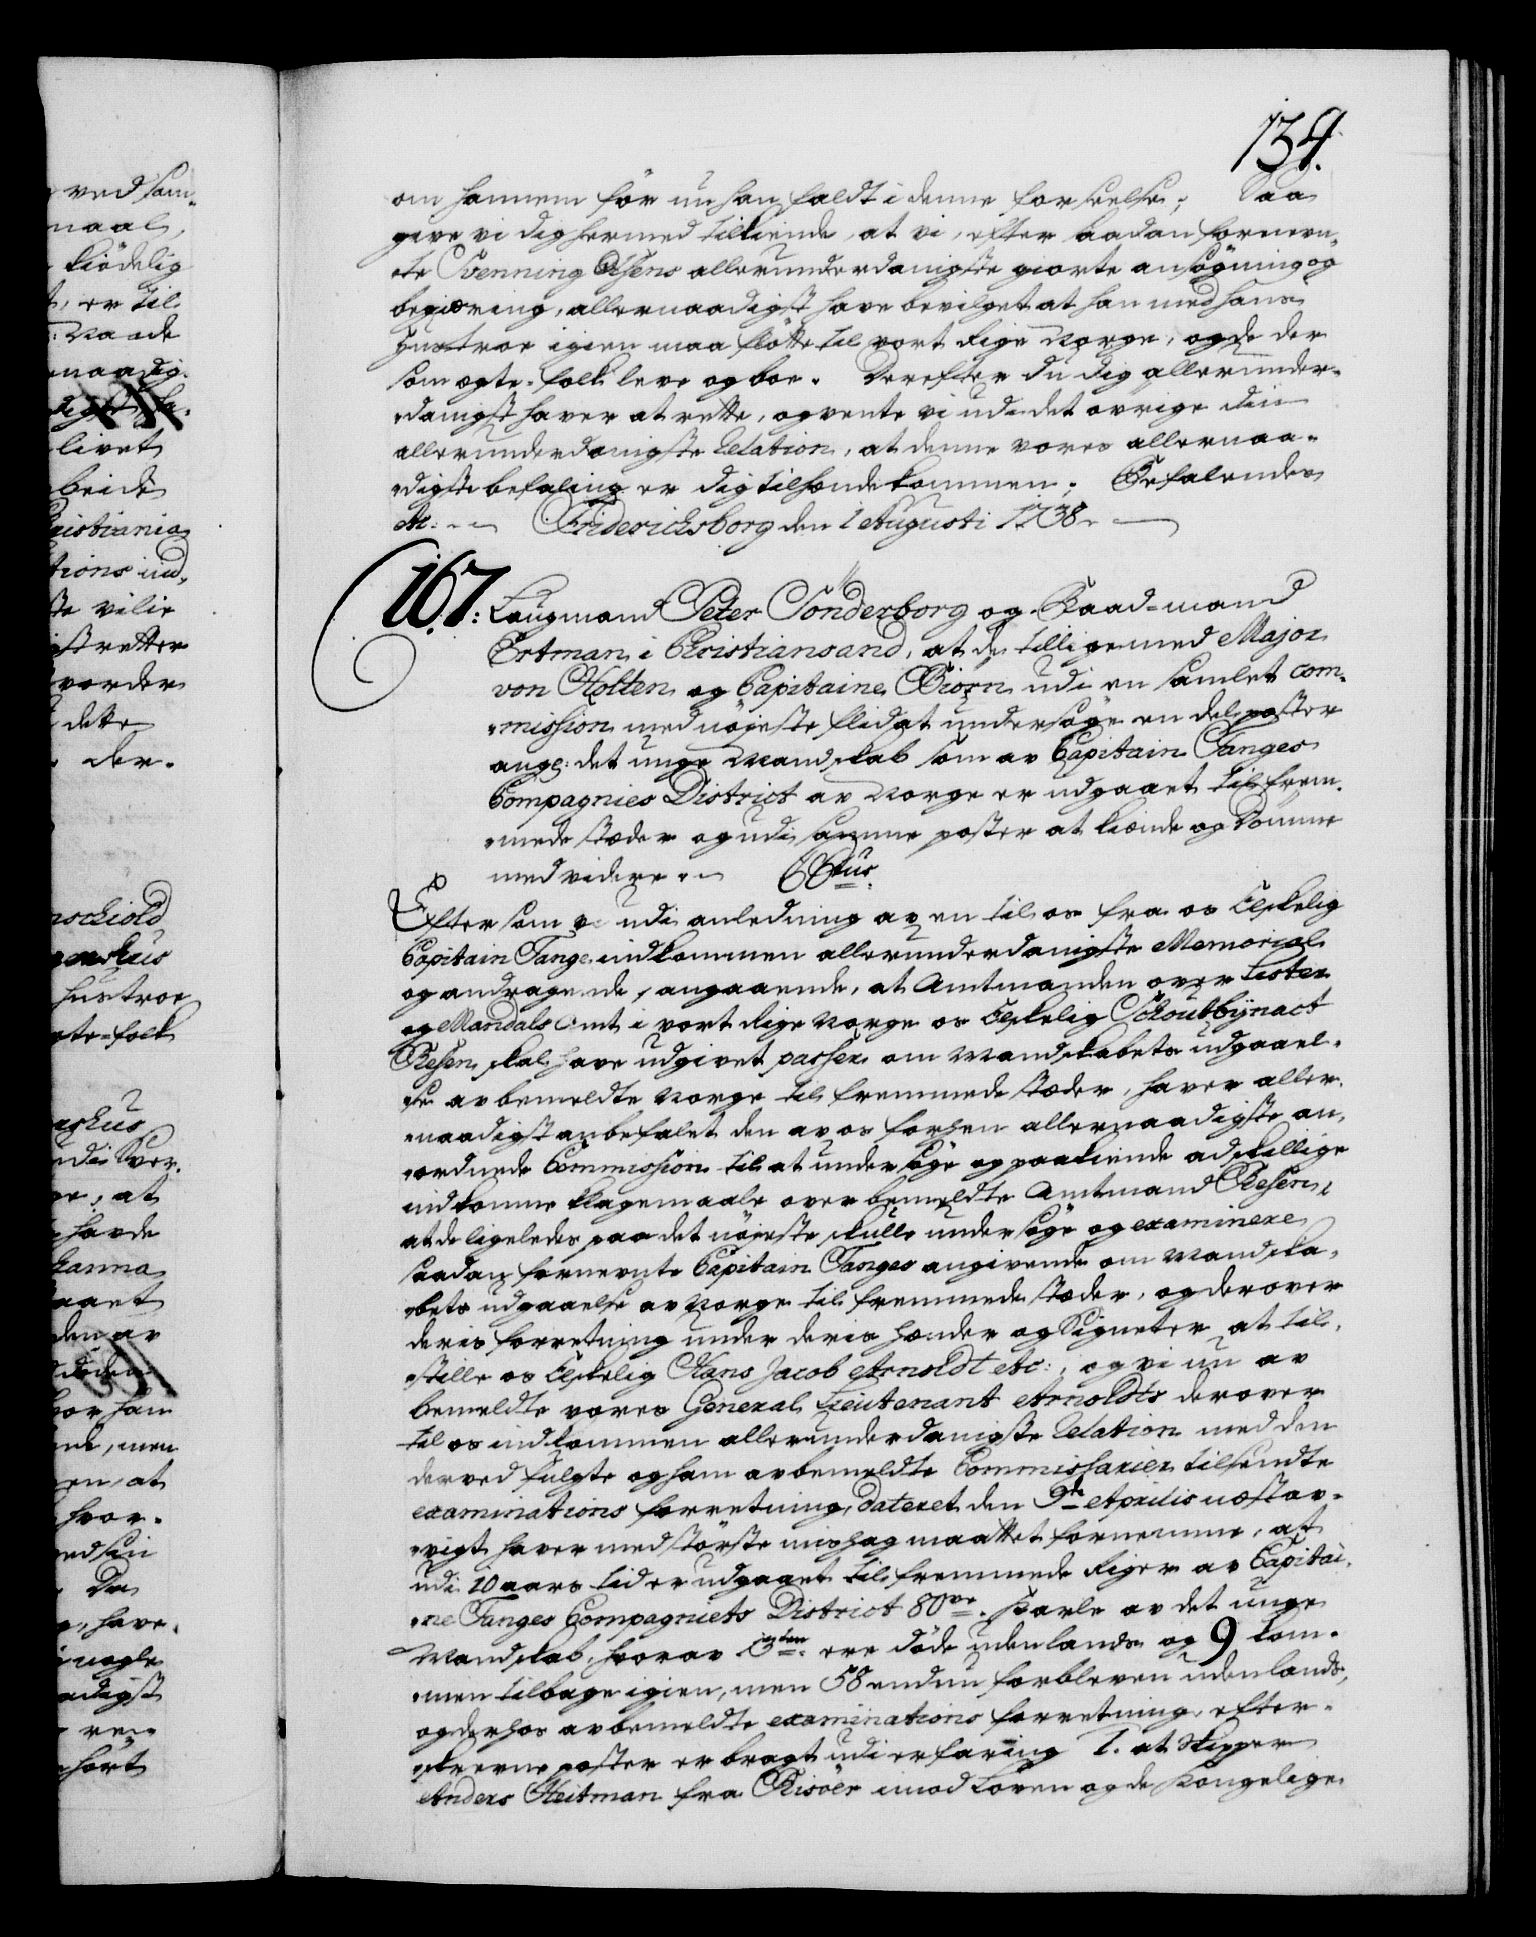 134.
om hannem før nu han faldt i denne forseelse; Saa
give vi dig hermed tilkiende, at vi, efter saadan fornevn-
te Svenning Olsens allerunderdanigste giorte ansögning og
begiæring, allernaadigst have bevilget at han med hans
Hustroe igien maa fløtte til vort Rige Norge, og de der
som ægte-folk leve og boe. Derefter du dig allerunder-
danigst haver at rette, og vente vi udi det øvrige din
allerunderdanigste Relation, at denne vores allernaa-
digste befaling er dig tilhændekommen; Befalendes
etc: Friderichsborg den 1 Augusti 1738.
167: Laugmand Peter Sönderborg og Raad-mand
Ertman i Christiansand, at de tilligemed Major
von Holten og Capitaine Biörn udi en samlet com-
mission med nöjeste flid at undersöge en del poster
ang: det unge Mandskab som av Capitain Tanges
Compagnies District av Norge er udgaaet til frem-
mede stæder og udi samme poster at kiende og dömme
med videre. C 6tus.
Eftersom vi udi anledning av en til os fra os Elskelig
Capitain Tange indkommen allerunderdanigste Memorial
og andragende, angaaende, at Amtmanden over Lister
og Mandals Amt i vort Rige Norge os Elskelig Schoutbÿnact
Resen, skal have udgivet passer om Mandskabets udgaael-
se av bemeldte Norge til fremmede stæder, haver aller-
naadigst anbefalet den av os forhen allernaadigste an-
ordnede Commission til at undersöge og paakiende adskillige
indkomne klagemaale over bemeldte Amtmand Resen,
at de ligeledes paa det nöjeste skulle undersöge og examinere
saadan fornevnte Capitain Tanges angivende om Mandska-
bets udgaaelse av Norge til fremmede stæder, og derover
deris forretning under deris hænder og Signeter at til-
stille os Elskelig Hans Jacob Arnoldt etc:, og vi nu av
bemeldte vores General Lieutenant Arnoldts derover
til os indkommen allerunderdanigste Relation med den
derved fulgte og ham av bemeldte Commissarier tilsendte
examinations forretning, dateret den 9de Aprilis næstav-
vigt haver med störste mishag maattet fornemme, at
udi 10 aars tid er udgaaet til fremmede Riger av Capitai-
ne Tanges Compagniets District 80ve Karle av det unge
Mandskab, hvorav 13ten ere döde udenlands og 9 kom-
men tilbage igien, men 58 endnu forbleven udenlands,
og derhos av bemeldte examinations forretning, efter-
skrevne poster er bragt udi erfaring 1. at Skipper
Anders Heitman fra Risöer imod Loven og de Kongelige